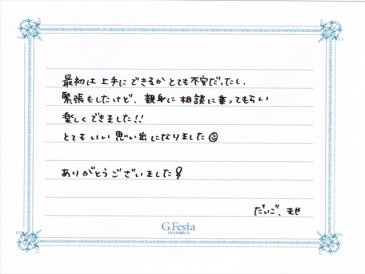 最初は上手にできるかとても不安だったし、
緊張もしたけど、親身に相談に乗ってもらい
楽しくできました!!
とてもいい思い出になりました☺
ありがとうございました!
だいご、もせ
G.Festa